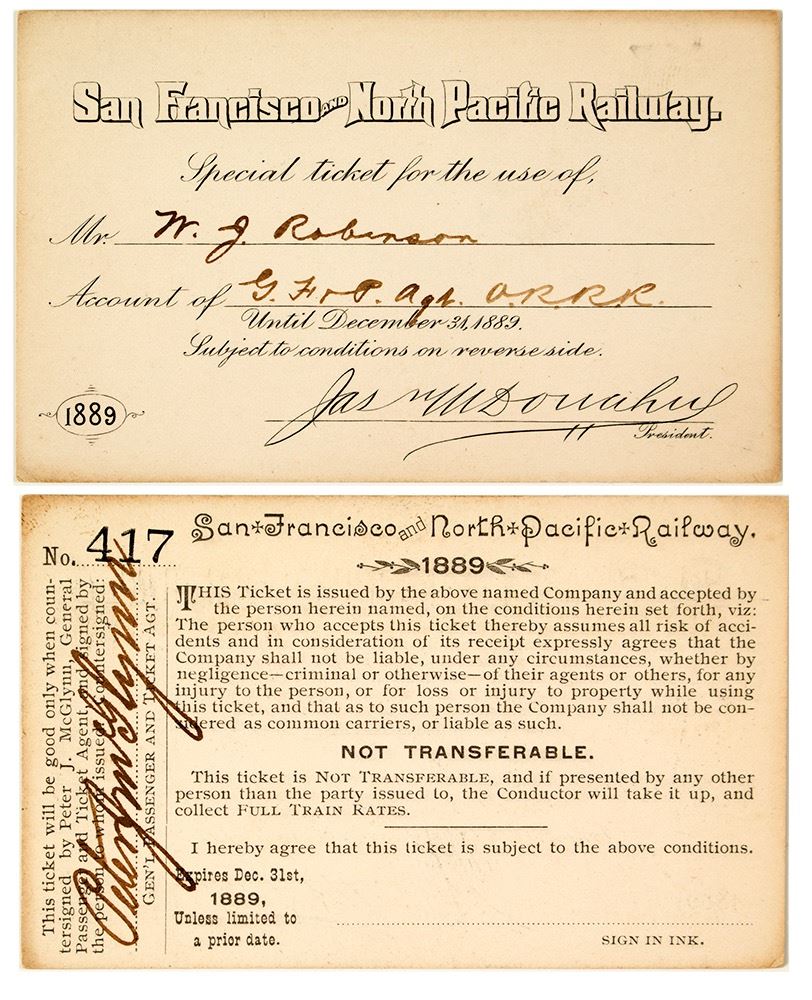 San Francisco AND North Pacific Railway.
Special ticket for the use of,
Mr. W. J. Robinson
Account of G. F & P. Agt. O.R.R.R.
Until December 31, 1889.
Subject to conditions on reverse side.
1889
Jas M McDonahue
President.
No. 417
San Francisco and North Pacific Railway.
1889
THIS Ticket is issued by the above named Company and accepted by
the person herein named, on the conditions herein set forth, viz:
The person who accepts this ticket thereby assumes all risk of acci-
dents and in consideration of its receipt expressly agrees that the
Company shall not be liable, under any circumstances, whether by
negligence—criminal or otherwise—of their agents or others, for any
injury to the person, or for loss or injury to property while using
this ticket, and that as to such person the Company shall not be con-
sidered as common carriers, or liable as such.
NOT TRANSFERABLE.
This ticket is NOT TRANSFERABLE, and if presented by any other
person than the party issued to, the Conductor will take it up, and
collect FULL TRAIN RATES.
I hereby agree that this ticket is subject to the above conditions.
Expires Dec. 31st,
1889,
Unless limited to
a prior date.
SIGN IN INK.
This ticket will be good only when coun-
tersigned by Peter J. McGlynn, General
Passenger and Ticket Agent, and signed by
the person to whom issued. Countersigned:
Peter J. McGlynn
GEN'L PASSENGER AND TICKET AGT.